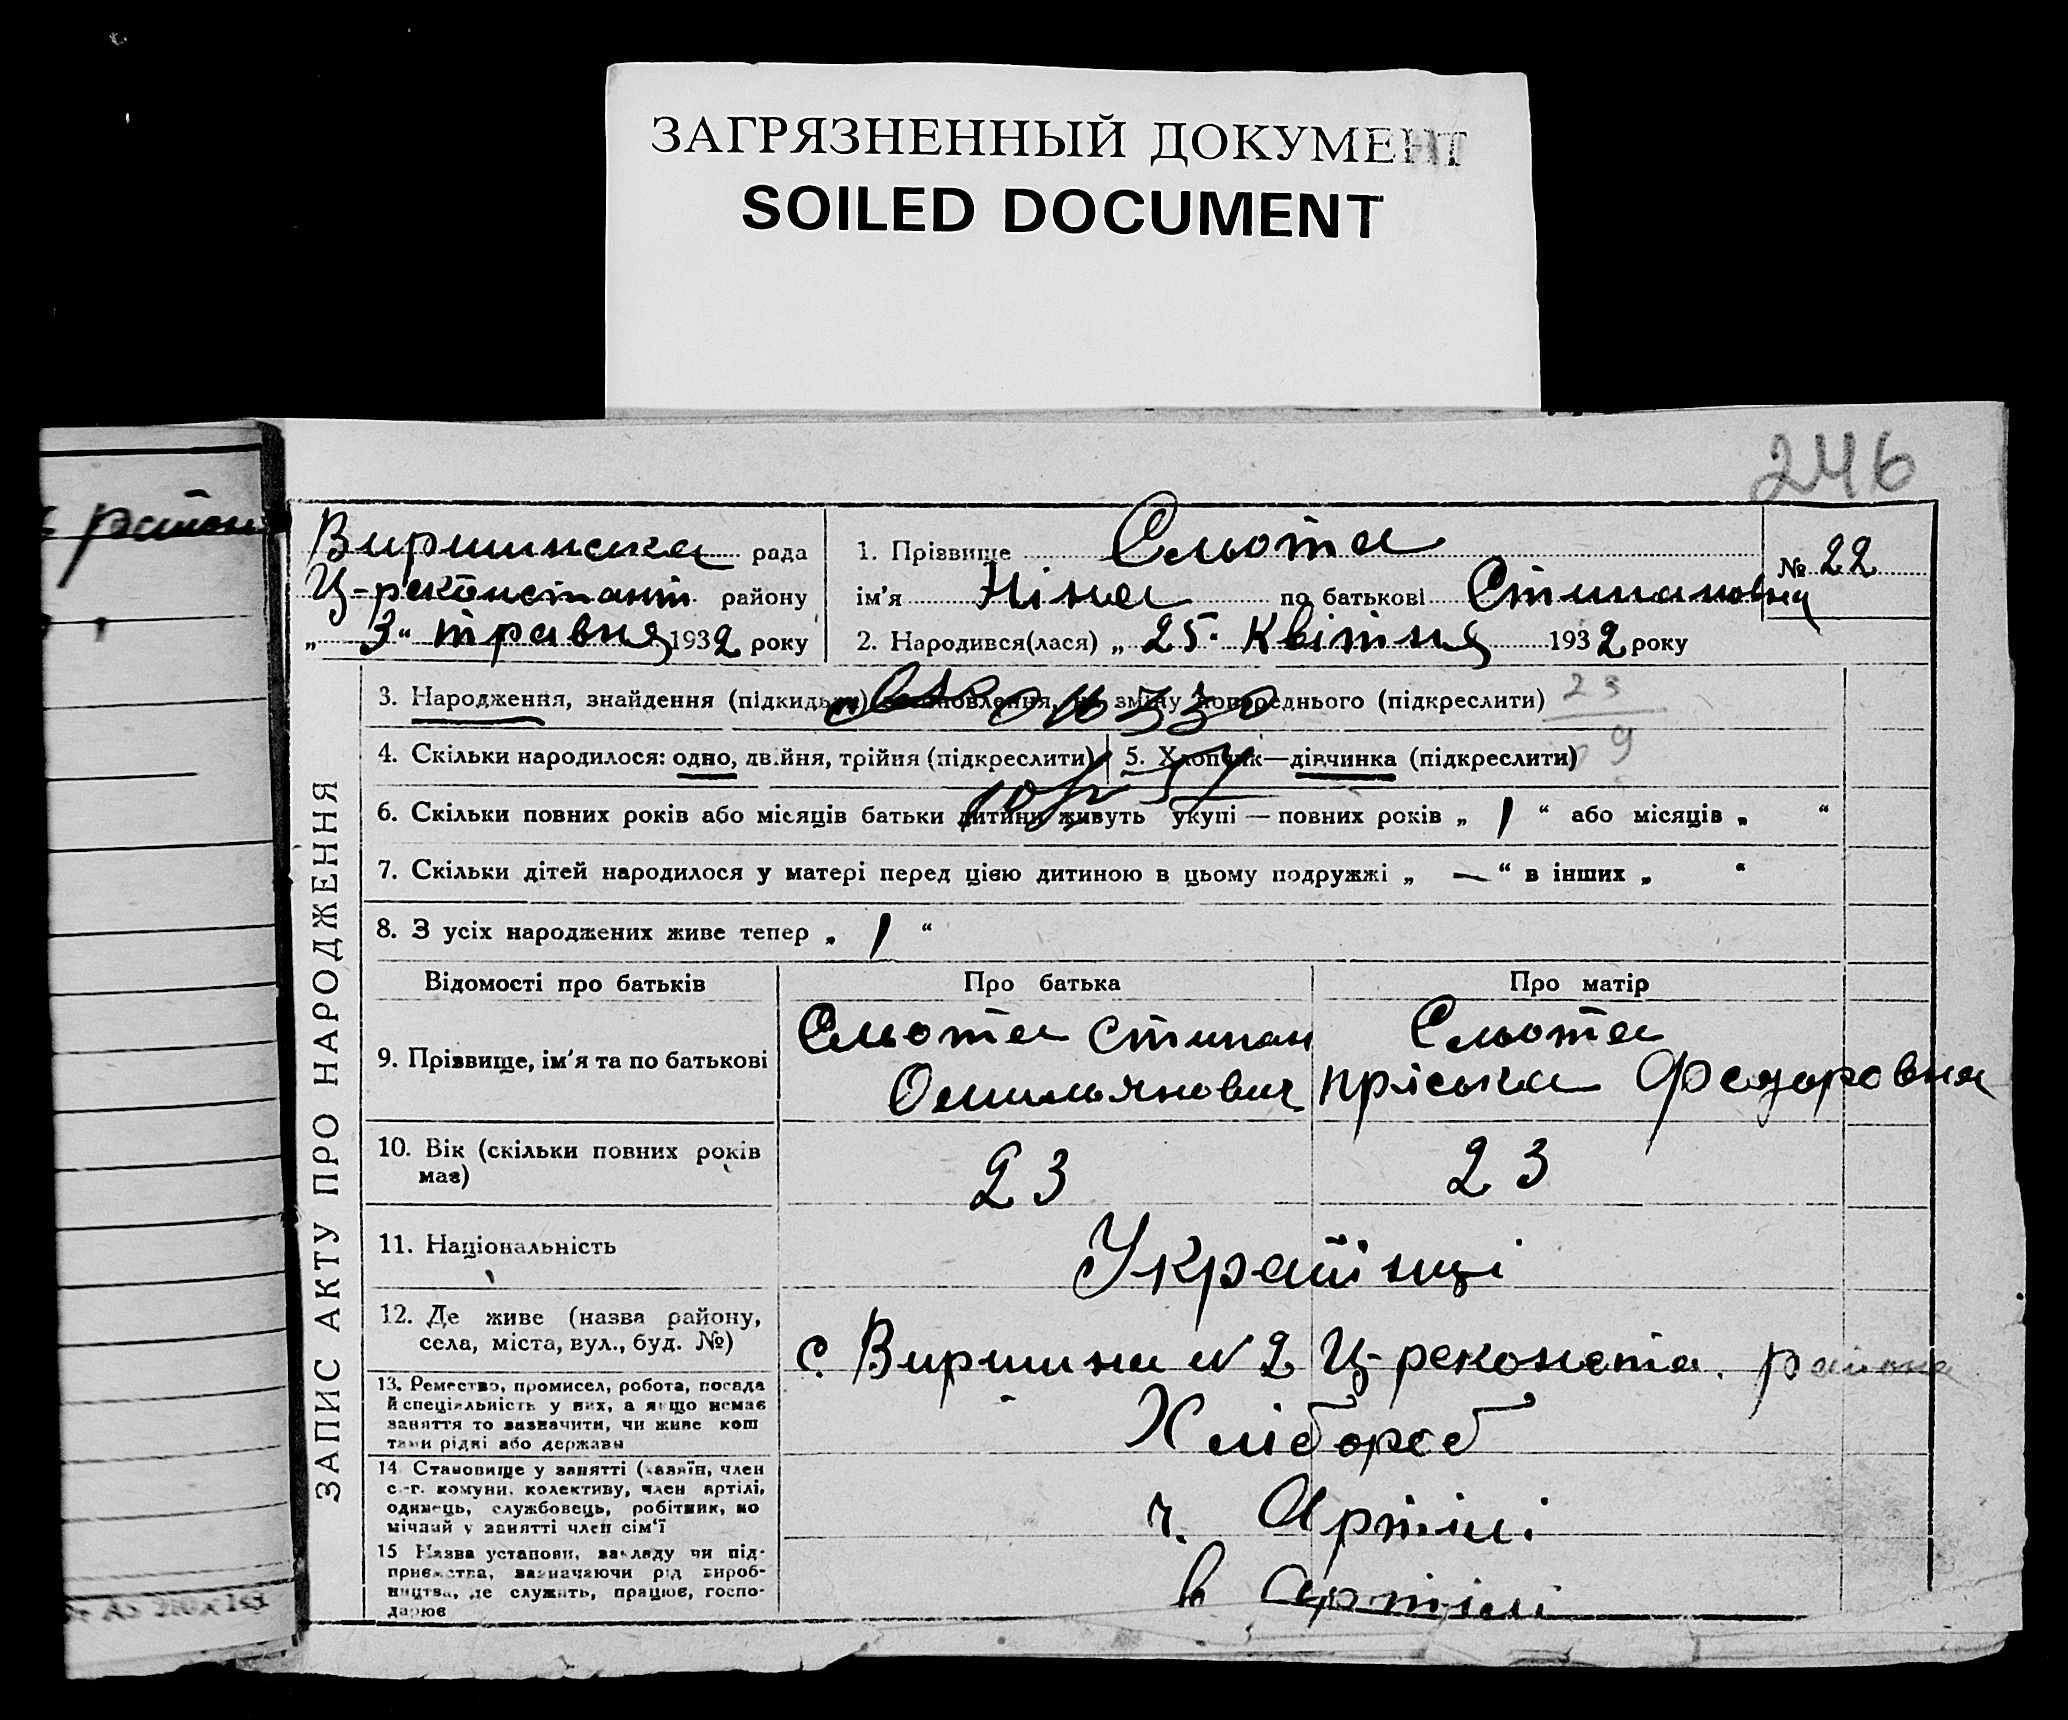 ЗАГРЯЗНЕННЫЙ ДОКУМЕНТ
SOILED DOCUMENT
246
район
Виришинська рада
Ц-реконстант району
„ 3 " травня 1932 року
1. Прізвище Сльота
ім'я Ніна по батькові Стипановна
2. Народився(лася) „ 25. Квітня 1932 року
№ 22
ЗАПИС АКТУ ПРО НАРОДЖЕННЯ
3. Народження, знайдення (підкидька) зміну попереднього (підкреслити)
23
9
4. Скільки народилося: одно, двійня, трійня (підкреслити)
5. Хлопчик—дівчинка (підкреслити)
6. Скільки повних років або місяців батьки дитини живуть укупі — повних років „ 1 “ або місяців „ “
7. Скільки дітей народилося у матері перед цією дитиною в цьому подружжі „ — “ в інших „ “
8. З усіх народжених живе тепер „ 1 “
Відомості про батьків Про батька Про матір
9. Прізвище, ім'я та по батькові
Сльота Стипан
Омильянович
Сльота
Пріська Федоровна
10. Вік (скільки повних років
має)
23
23
11. Національність
Українці
12. Де живе (назва району,
села, міста, вул., буд. №)
с. Виришини N 2 Ц-реконста. района
13. Ремество, промисел, робота, посада
й спеціяльність у них, а якщо немає
заняття то зазначити, чи живе кош
тами рідні або держави
Хлібороб
14 Становище у занятті (хазяїн, член
с.-г. комуни, колективу, член артілі,
одинець, службовець, робітник, по
мічний у занятті член сім'ї
ч. Артілі
15 Назва установи, закладу чи під-
приємства, зазначаючи рід вироб-
ництва, де служить, працює, госпо-
дарює
в артілі